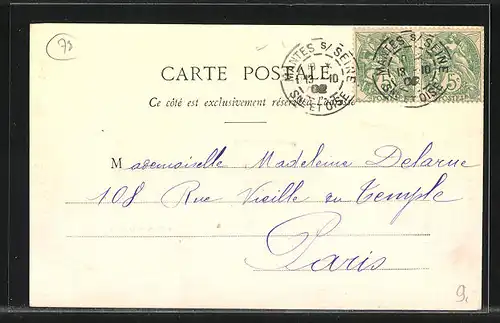 78
CARTE POSTALE
Ce côté est exclusivement réservé à l'adresse
MANTES S/ SEINE
13 10
02
SNE ET OISE
MANTES S/ SEINE
13 10
02
SNE ET OISE
5c
5c
Mademoiselle Madeleine Delarue
108 Rue Vieille du Temple
Paris
9.